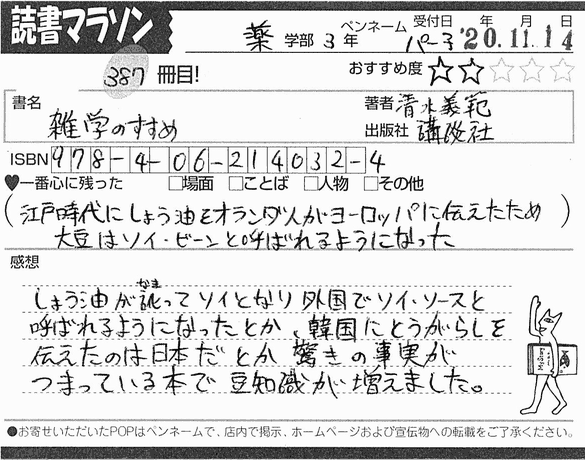 読書マラソン
薬 学部 3 年 ペンネーム パー子 受付日 '20年.11月.14日
387 冊目! おすすめ度 ☆☆☆☆☆
書名 雑学のすすめ 著者 清水義範
出版社 講談社
ISBN 978-4-06-214032-4
♥一番心に残った □場面 □ことば □人物 □その他
(江戸時代にしょう油をオランダ人がヨーロッパに伝えたため)
大豆はソイ・ビーンと呼ばれるようになった
感想
しょう油が訛(なま)ってソイとなり外国でソイ・ソースと
呼ばれるようになったとか、韓国にとうがらしを
伝えたのは日本だとか驚きの事実が
つまっている本で豆知識が増えました。
●お寄せいただいたPOPはペンネームで、店内で掲示、ホームページおよび宣伝物への転載をご了承ください。